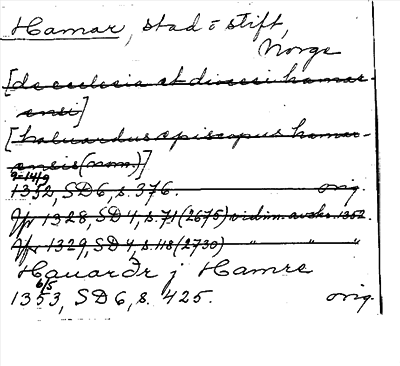 Hamar, stad o stift,
Norge
[de ecclesia et diocesi hamar-
ensi]
[haluardus episcopus hamar-
ensis (nom.)]
9-14/9
1352, SD6, s. 376. orig.
Jfr 1328, SD4, s. 71 (2675) vidim. avskr. 1352.
Jfr 1329, SD4, s. 118 (2730) " " "
Hauarðr j Hamre
6/5
1353, SD6, s. 425. orig.